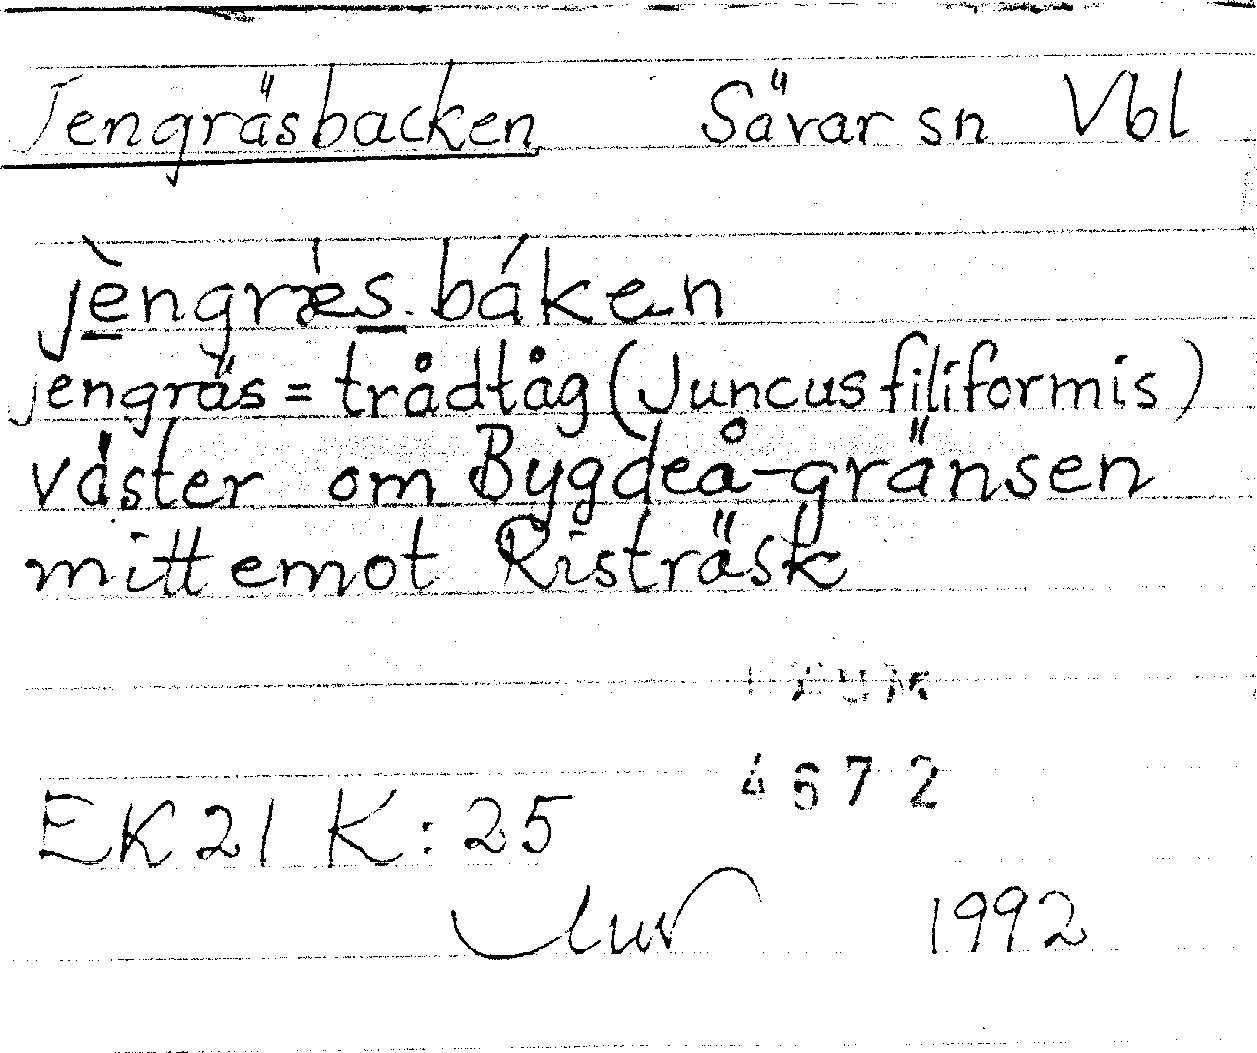 Jengräsbacken Sävar sn Vbl
jèngræs.báken
jengräs = trådtåg (Juncus filiformis)
väster om Bygdeå-gränsen
mittemot Risträsk
4672
EK21 K:25
1992